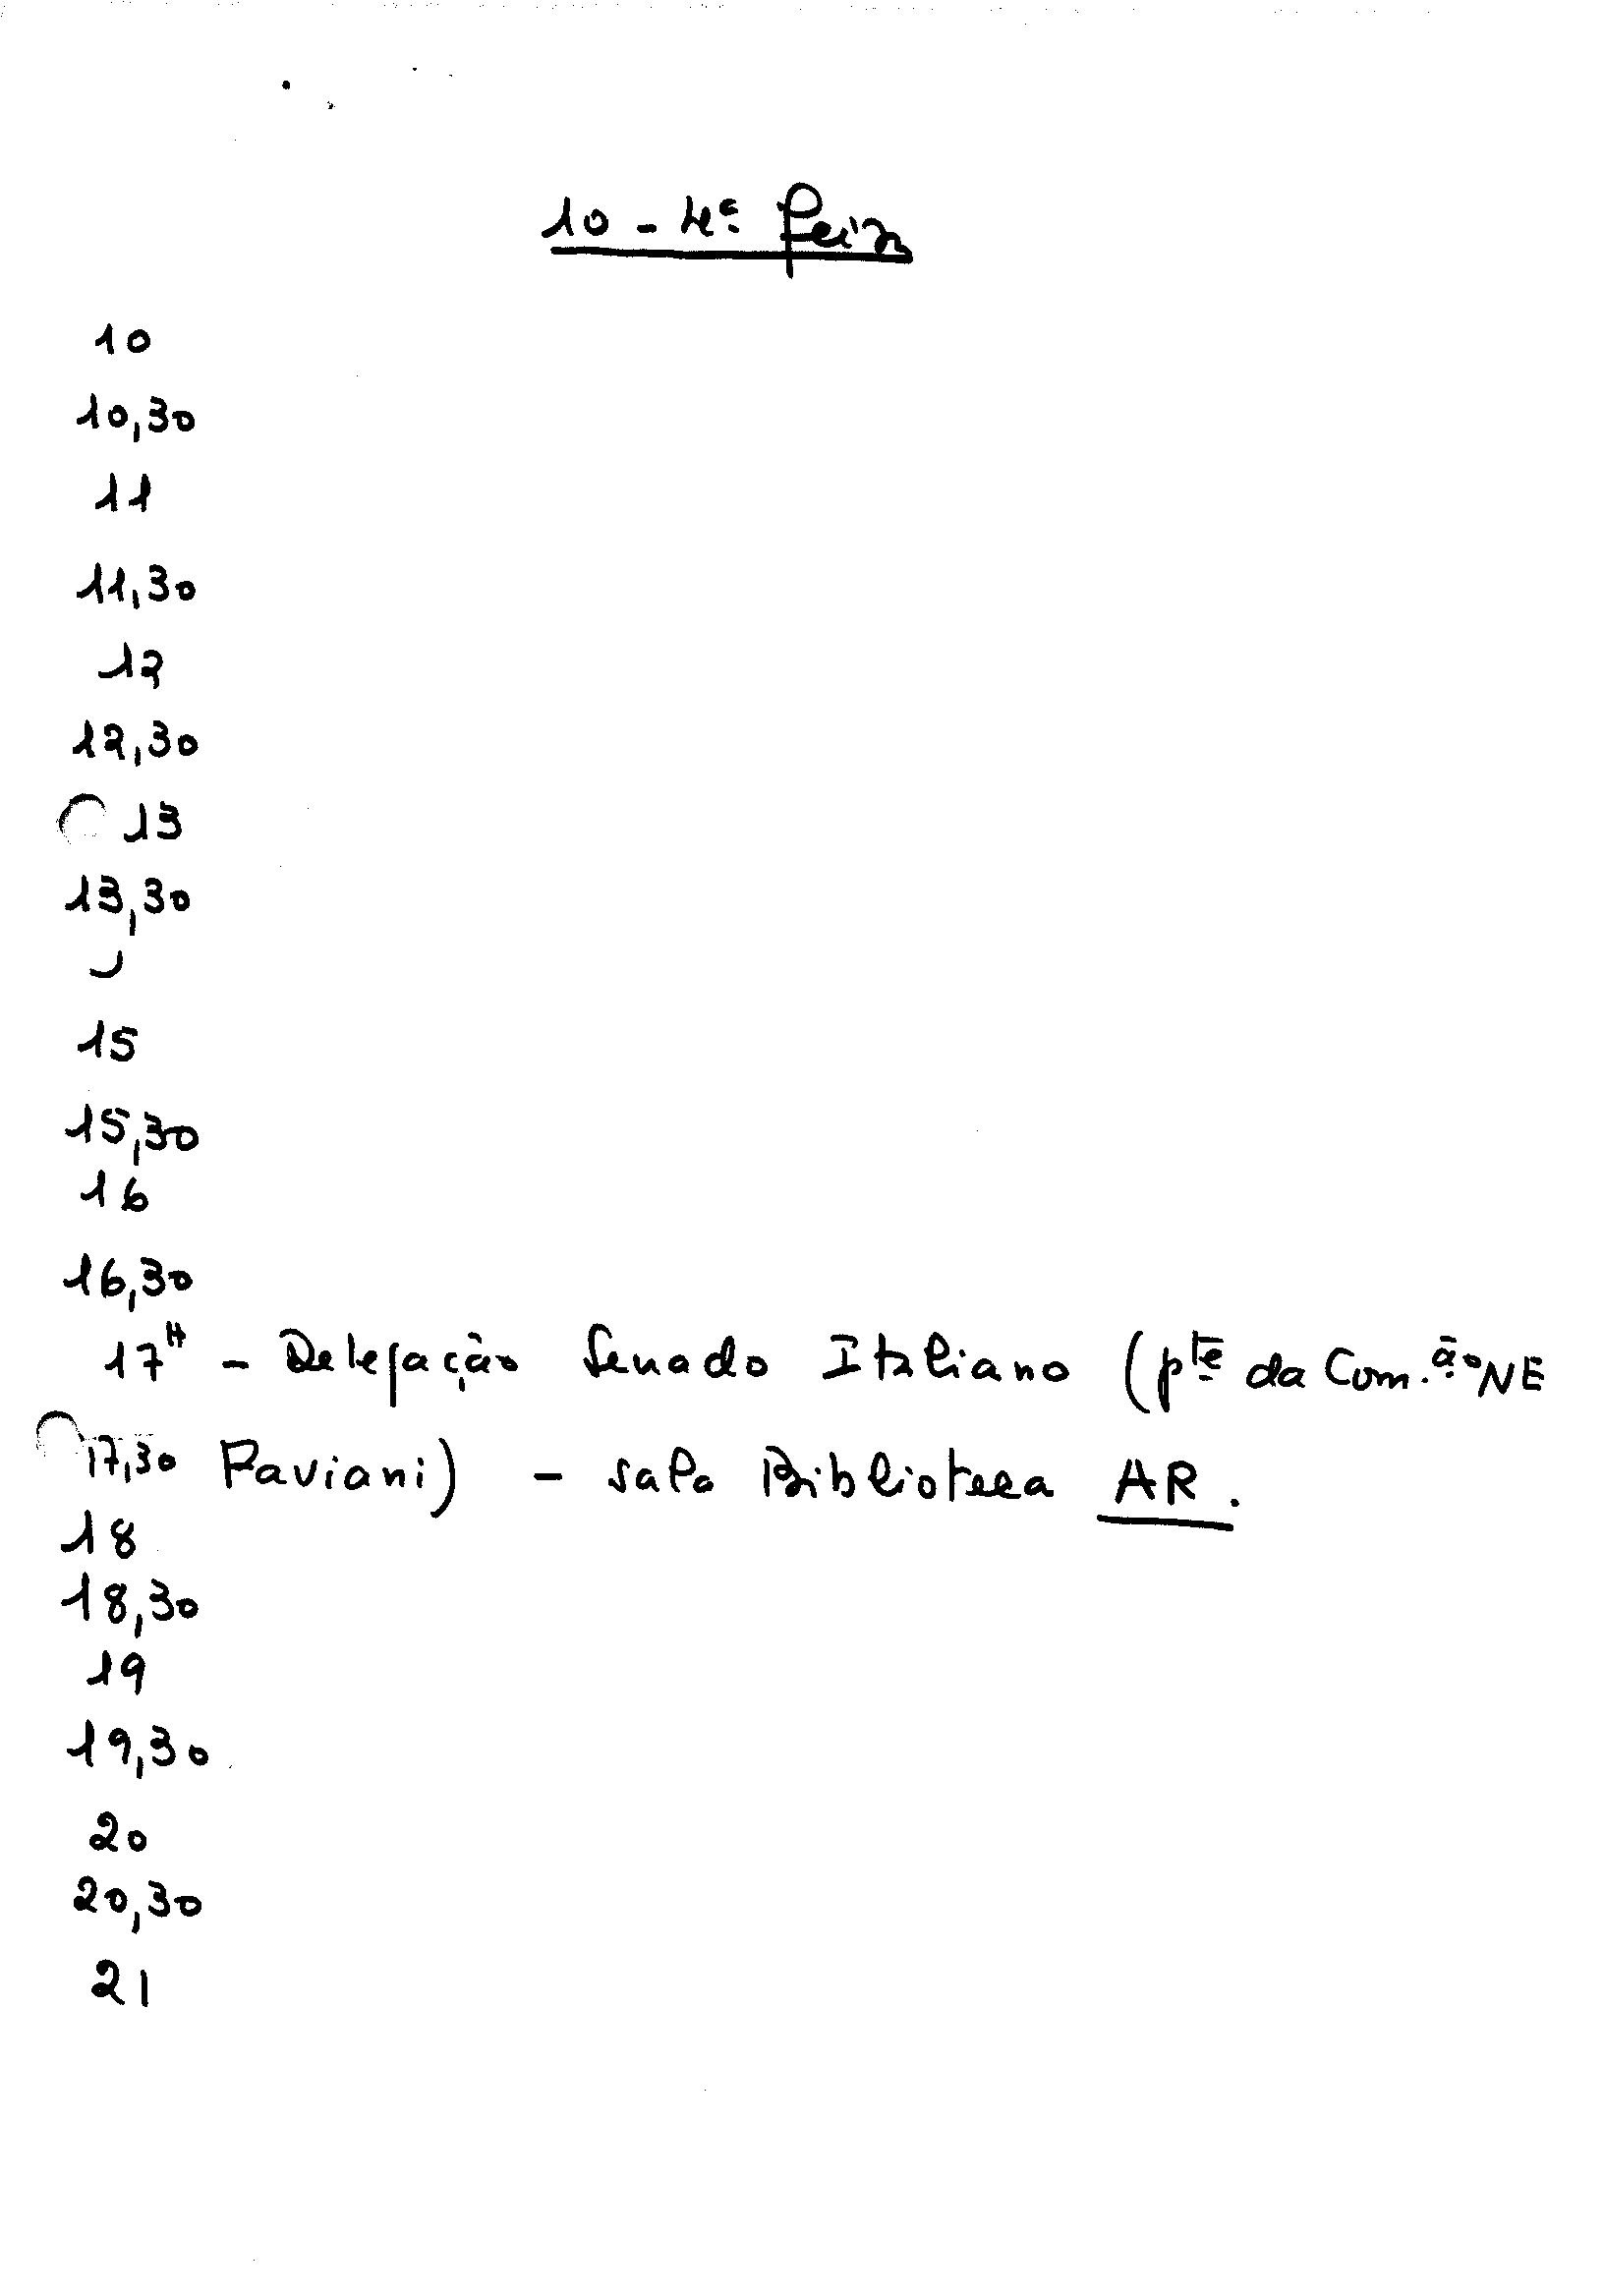 10 - 4ª feira
10
10,30
11
11,30
12
12,30
13
13,30
15
15,30
16
16,30
17H - Delegação Senado Italiano (pte da Com.ão NE
17,30 Paviani) - sala Biblioteca AR.
18
18,30
19
19,30
20
20,30
21